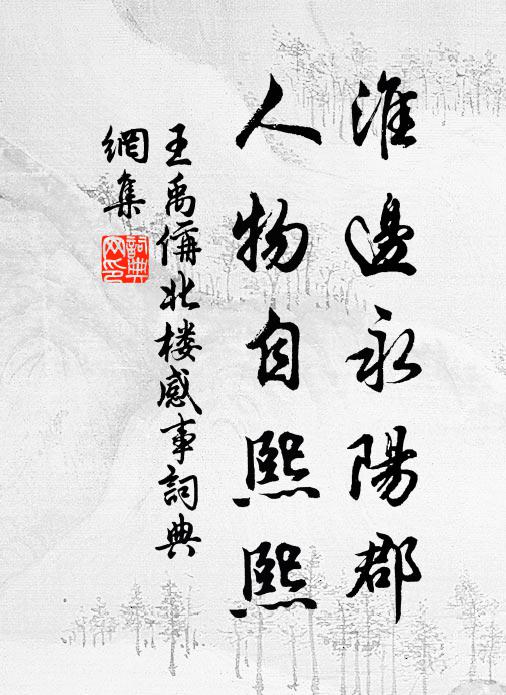 淮邊永陽郡
人物自熙熙
王禹偁北楼感事詞典
網集
詞典
网印